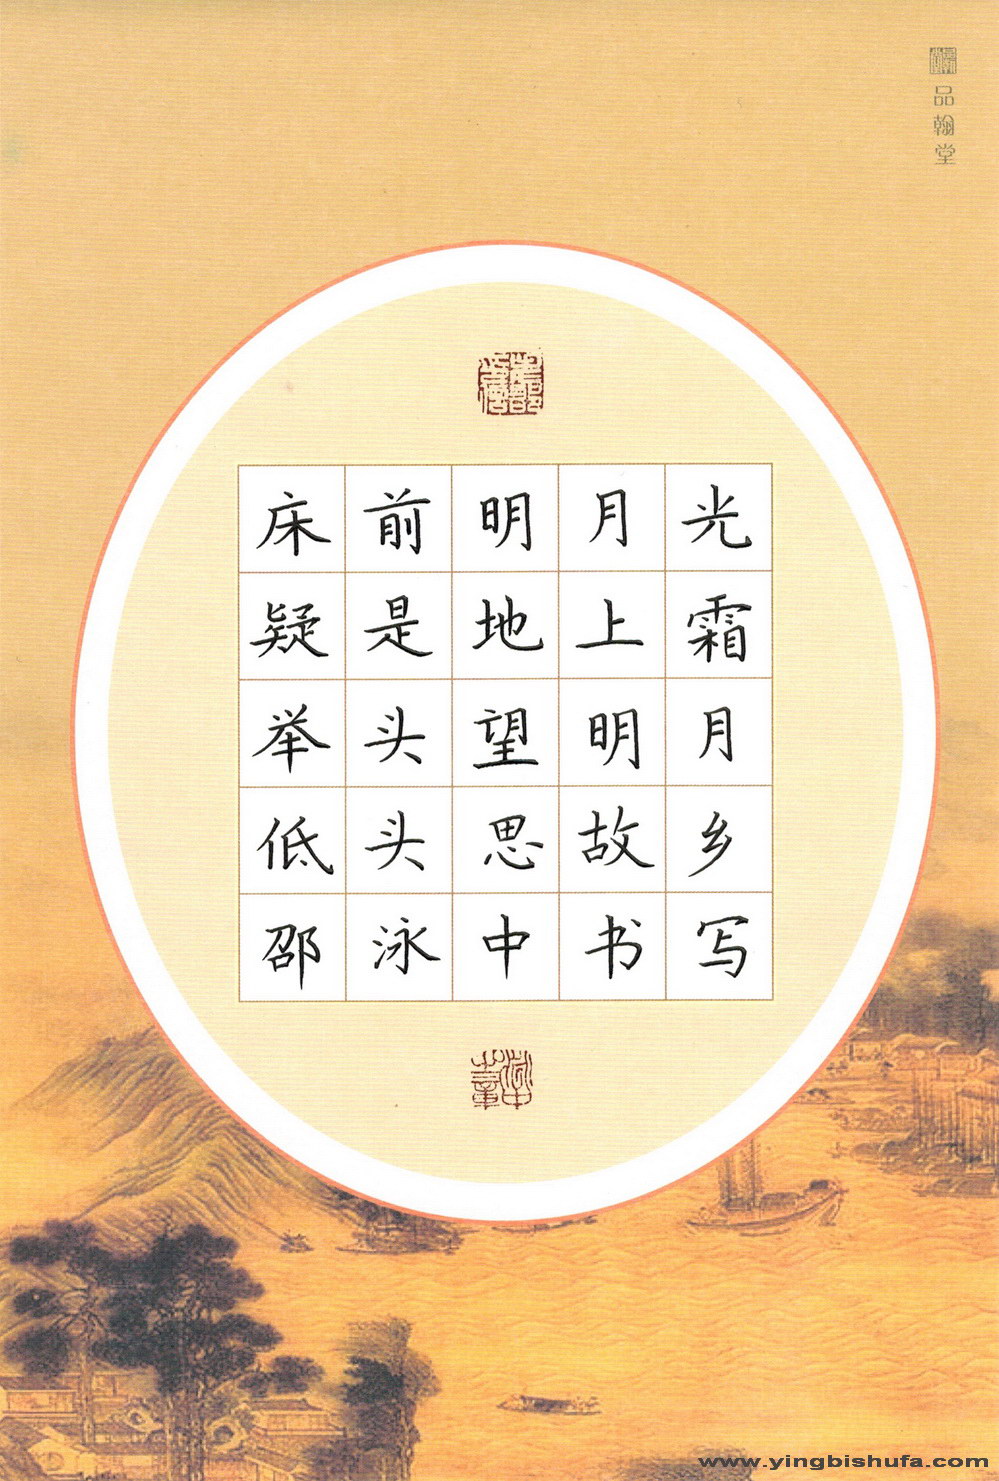 品翰堂
床前明月光
疑是地上霜
举头望明月
低头思故乡
邵泳中书写
www.yingbishufa.com